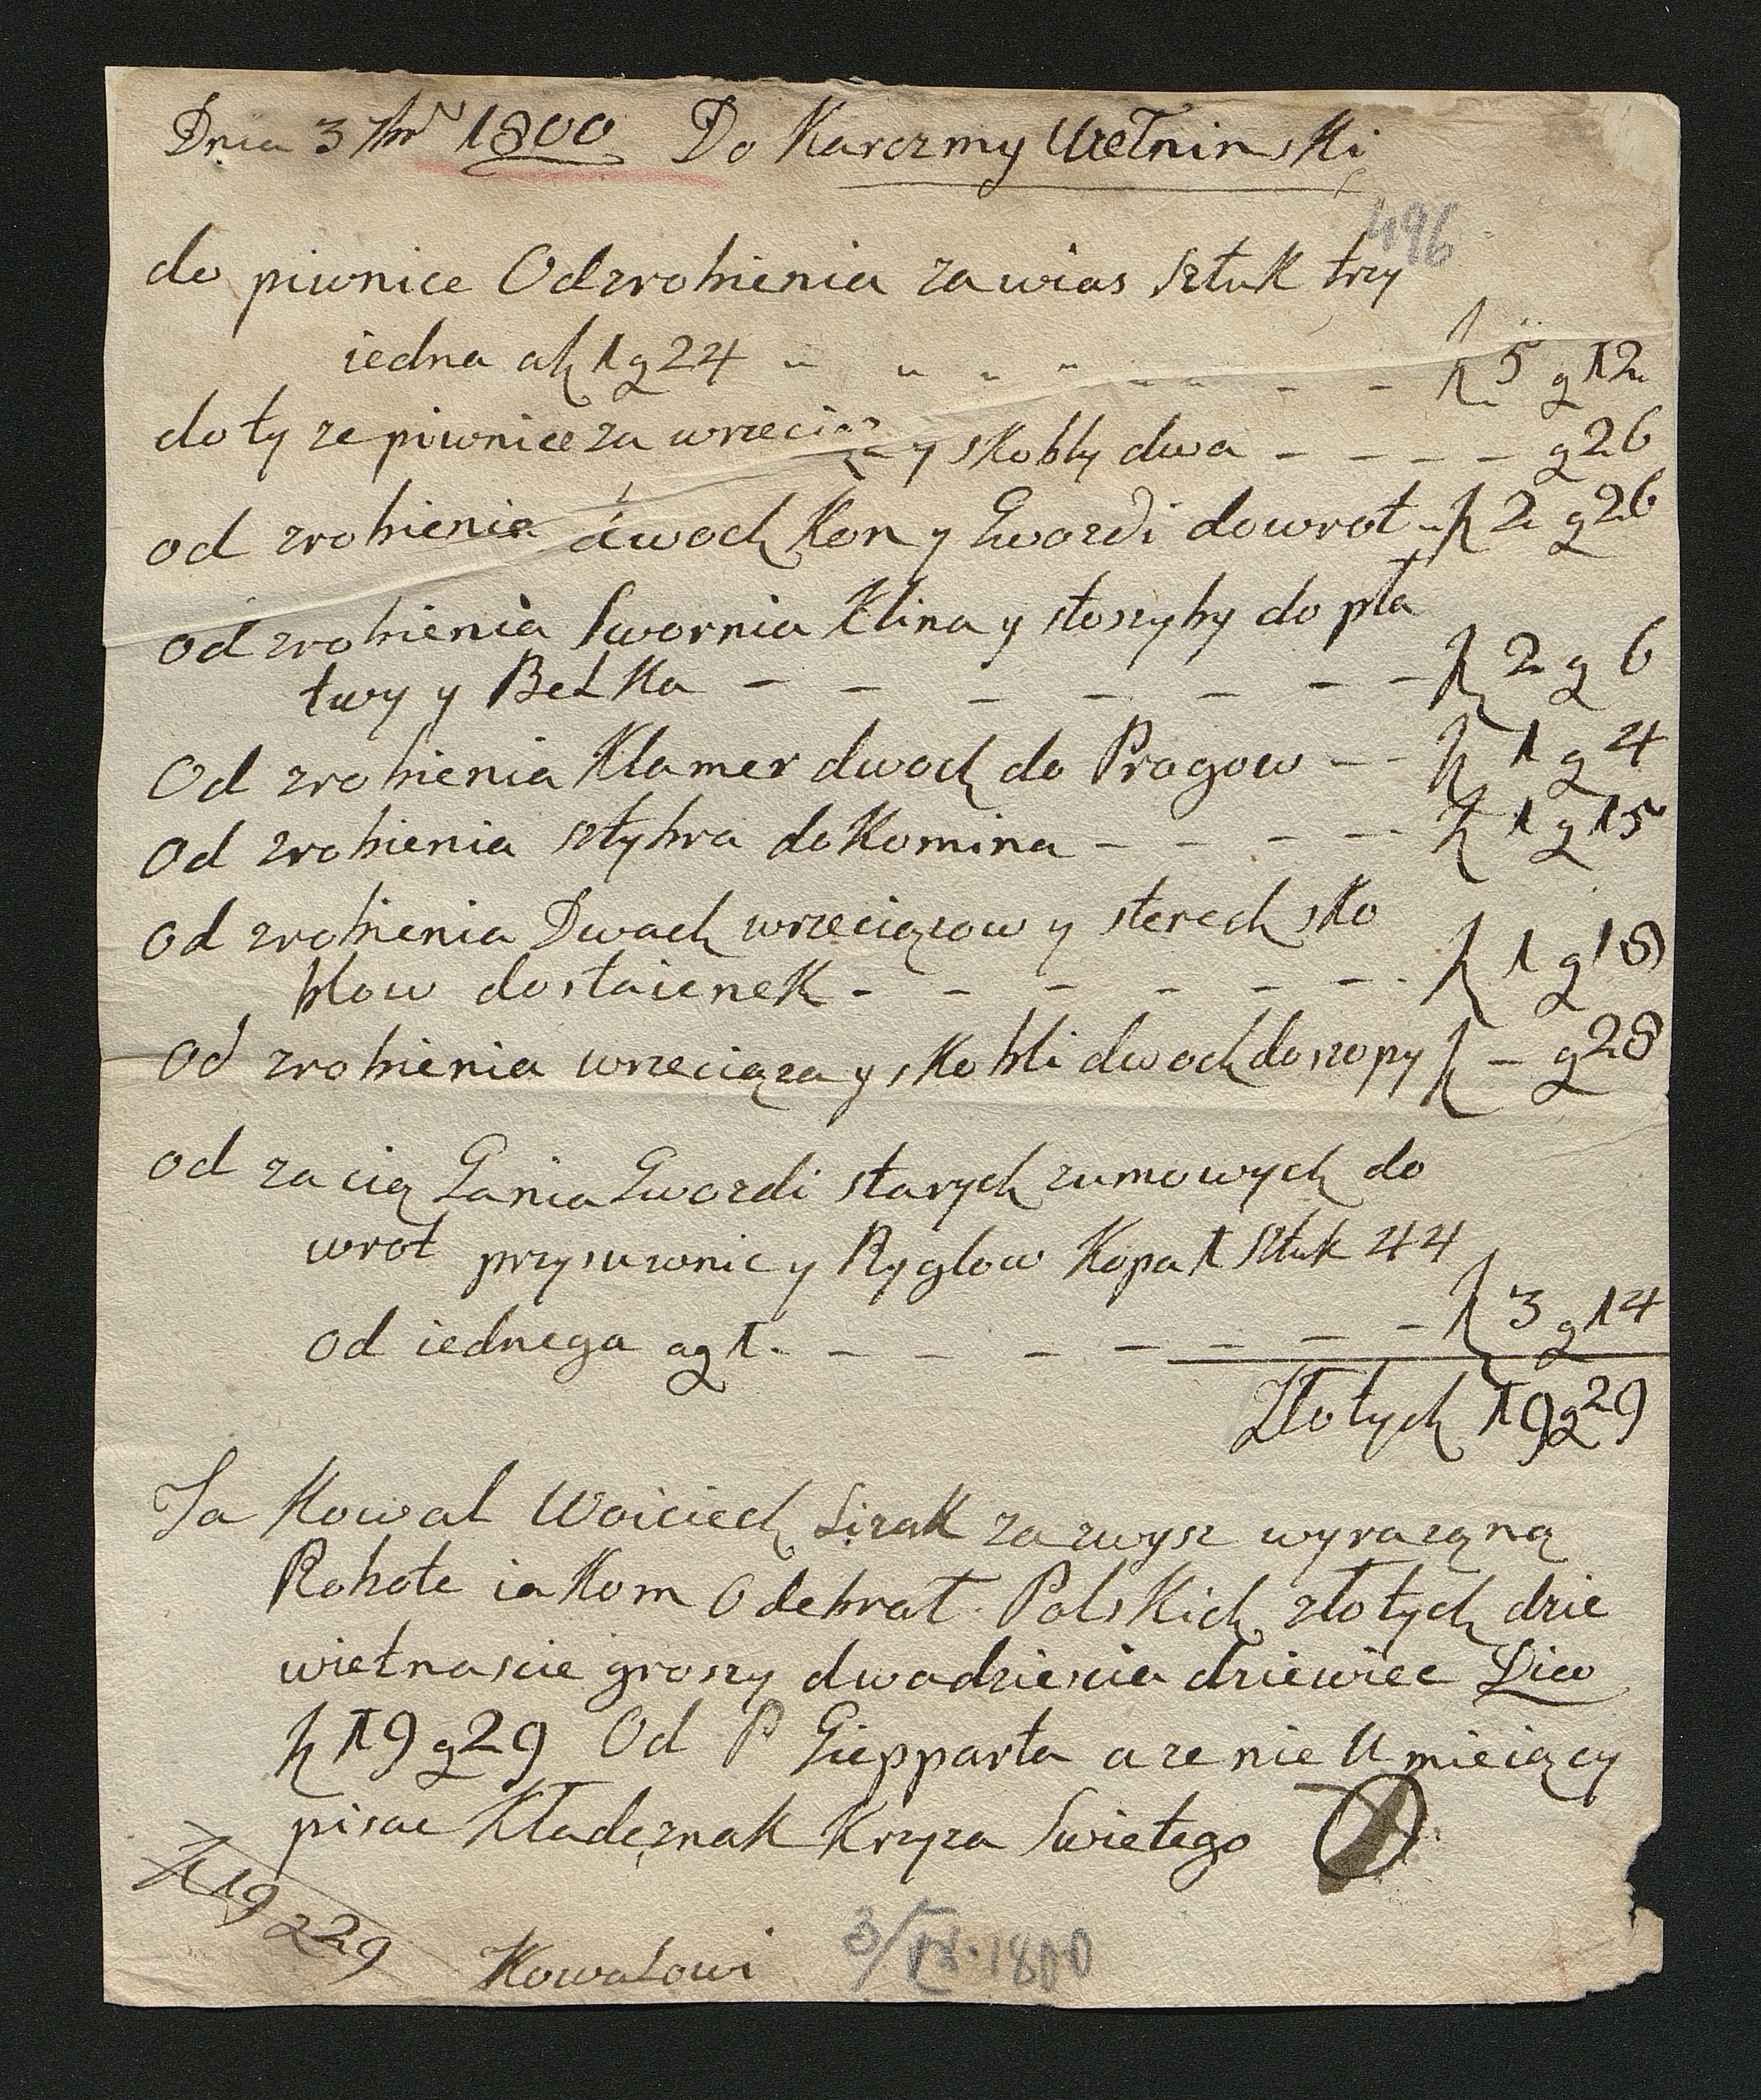 Dnia 3 7br 1800 Do Karczmy Wełninski
496
do piwnice Odzrobienia zawias Sztuk trzy
iedna a zł 1 g 24 - - - - - - - - zł 5 g 12
do ty ze piwnice za wrzeciąz y skobly dwa - - - - g 26
od zrobienia dwoch Kon y Gwozdi dowrot - zł 2 g 26
od zrobienia Swornia Klina y stoszyby do pła
twy y Belka - - - - - - - zł 2 g 6
Od zrobienia Klamer dwoch do Progow - - zł 1 g 4
Od zrobienia sztybra do Komina - - - - zł 1 g 15
Od zrobienia Dwach wrzeciązow y sterech sko
blow do staienek - - - - - - zł 1 g 18
Od zrobienia wrzeciąza y skobli dwoch do szopy zł - g 28
od zaciąGania Gwozdi starych zumowych do
wrot przysuwnic y Ryglow Kopa 1 Sztuk 44
od iednega a g 1 - - - - - - - - zł 3 g 14
Złotych 19 g 29
Ja Kowal Woiciech Sizak za zwysz wyrazạną
Robote iakom Odebrał Polskich złotych dzie
wietnascie groszy dwadziescia dziewiec Dico
zł 19 g 29 Od P Giepparta a ze nie Umieiący
pisac Kładę znak Krzyza Swietego
zł 19 g 29
Kowalowi 3/IX. 1800